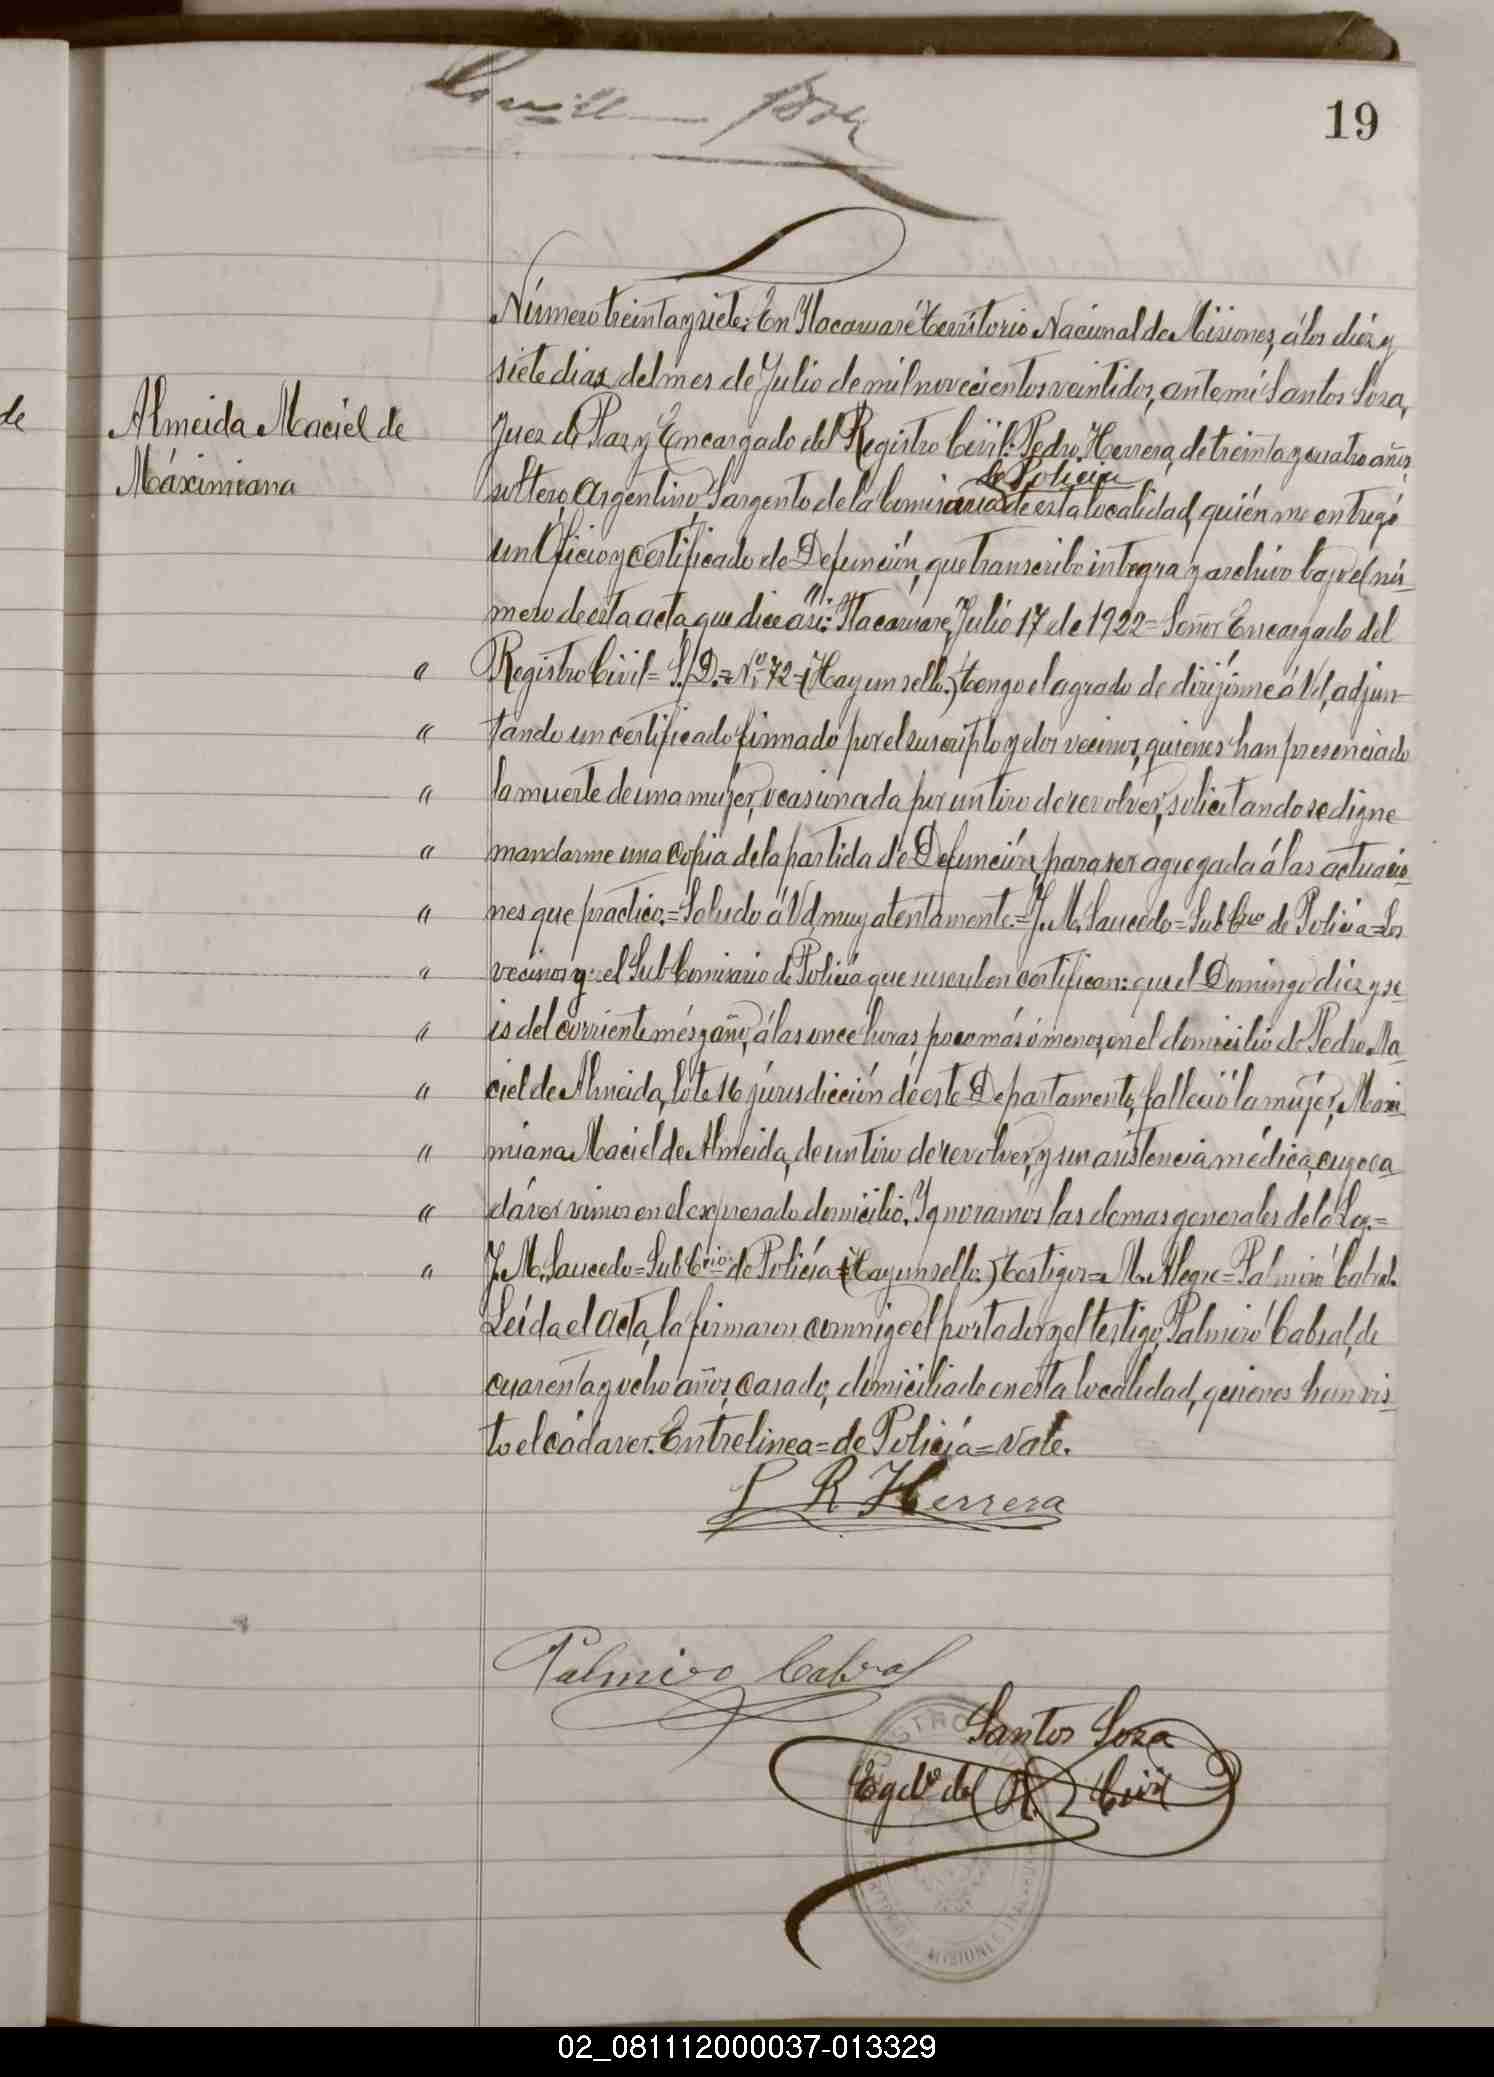 19
Número treinta y siete: En Itacaruaré Territorio Nacional de Misiones, á los diez y
siete dias del mes de Julio de mil novecientos veintidos, ante mi Santos Soza,
de
Almeida Maciel de
Máximiana
Juez de Paz y Encargado del Registro Civil: Pedro Herrera, de treinta y cuatro años,
de Policia
soltero, Argentino, Sargento de la Comisaría de esta localidad, quién me entregó
un Oficio y certificado de Defunción, que transcribo integra y archivo bajo el nú-
mero de esta acta, que dice así: "Itacaruaré, Julio 17 de 1922= Señor Encargado del
" Registro Civil= S/D.= Nº 72= (Hay un sello.) Tengo el agrado de dirijirme á Vd, adjun-
" tando un certificado firmado por el suscripto y dos vecinos, quienes han presenciado
" la muerte de una mujer, ocasionada por un tiro de revolver, solicitando se digne
" mandarme una copia de la partida de Defunción, para ser agregada á las actuacio-
" nes que practico.= Saludo á Vd, muy atentamente.= J. M. Saucedo= Sub Crio de Policia= Los
" vecinos y el Sub Comisario de Policía que suscriben certifican: que el Domingo diez y se
" is del corriente més y año, á las once horas, poco más ó menos, en el domicilio de Pedro Ma-
" ciel de Almeida, lote 16 júrisdicción de este Departamento, falleció la mujer, Maxi-
" miana Maciel de Almeida, de un tiro de revolver, y sin asistencia médica, cuyo ca
" dáver vimos en el expresado domicilio. Ygnoramos las demas generales de la Ley.=
" J. M. Saucedo= Sub Crio. de Policía= (Hay un sello.) Testigos= M. Alegre= Palmiro Cabral.
Leída el acta, la firmaron conmigo el portador y el testigo, Palmiro Cabral, de
cuarenta y ocho años, casado, domiciliado en esta localidad, quienes han vis-
to el cádaver. Entrelinea= de Policía= Vale.
P R Herrera
Palmiro Cabral
Santos Soza
Egdo. del R. Civil
MISIONES
02_081112000037-013329